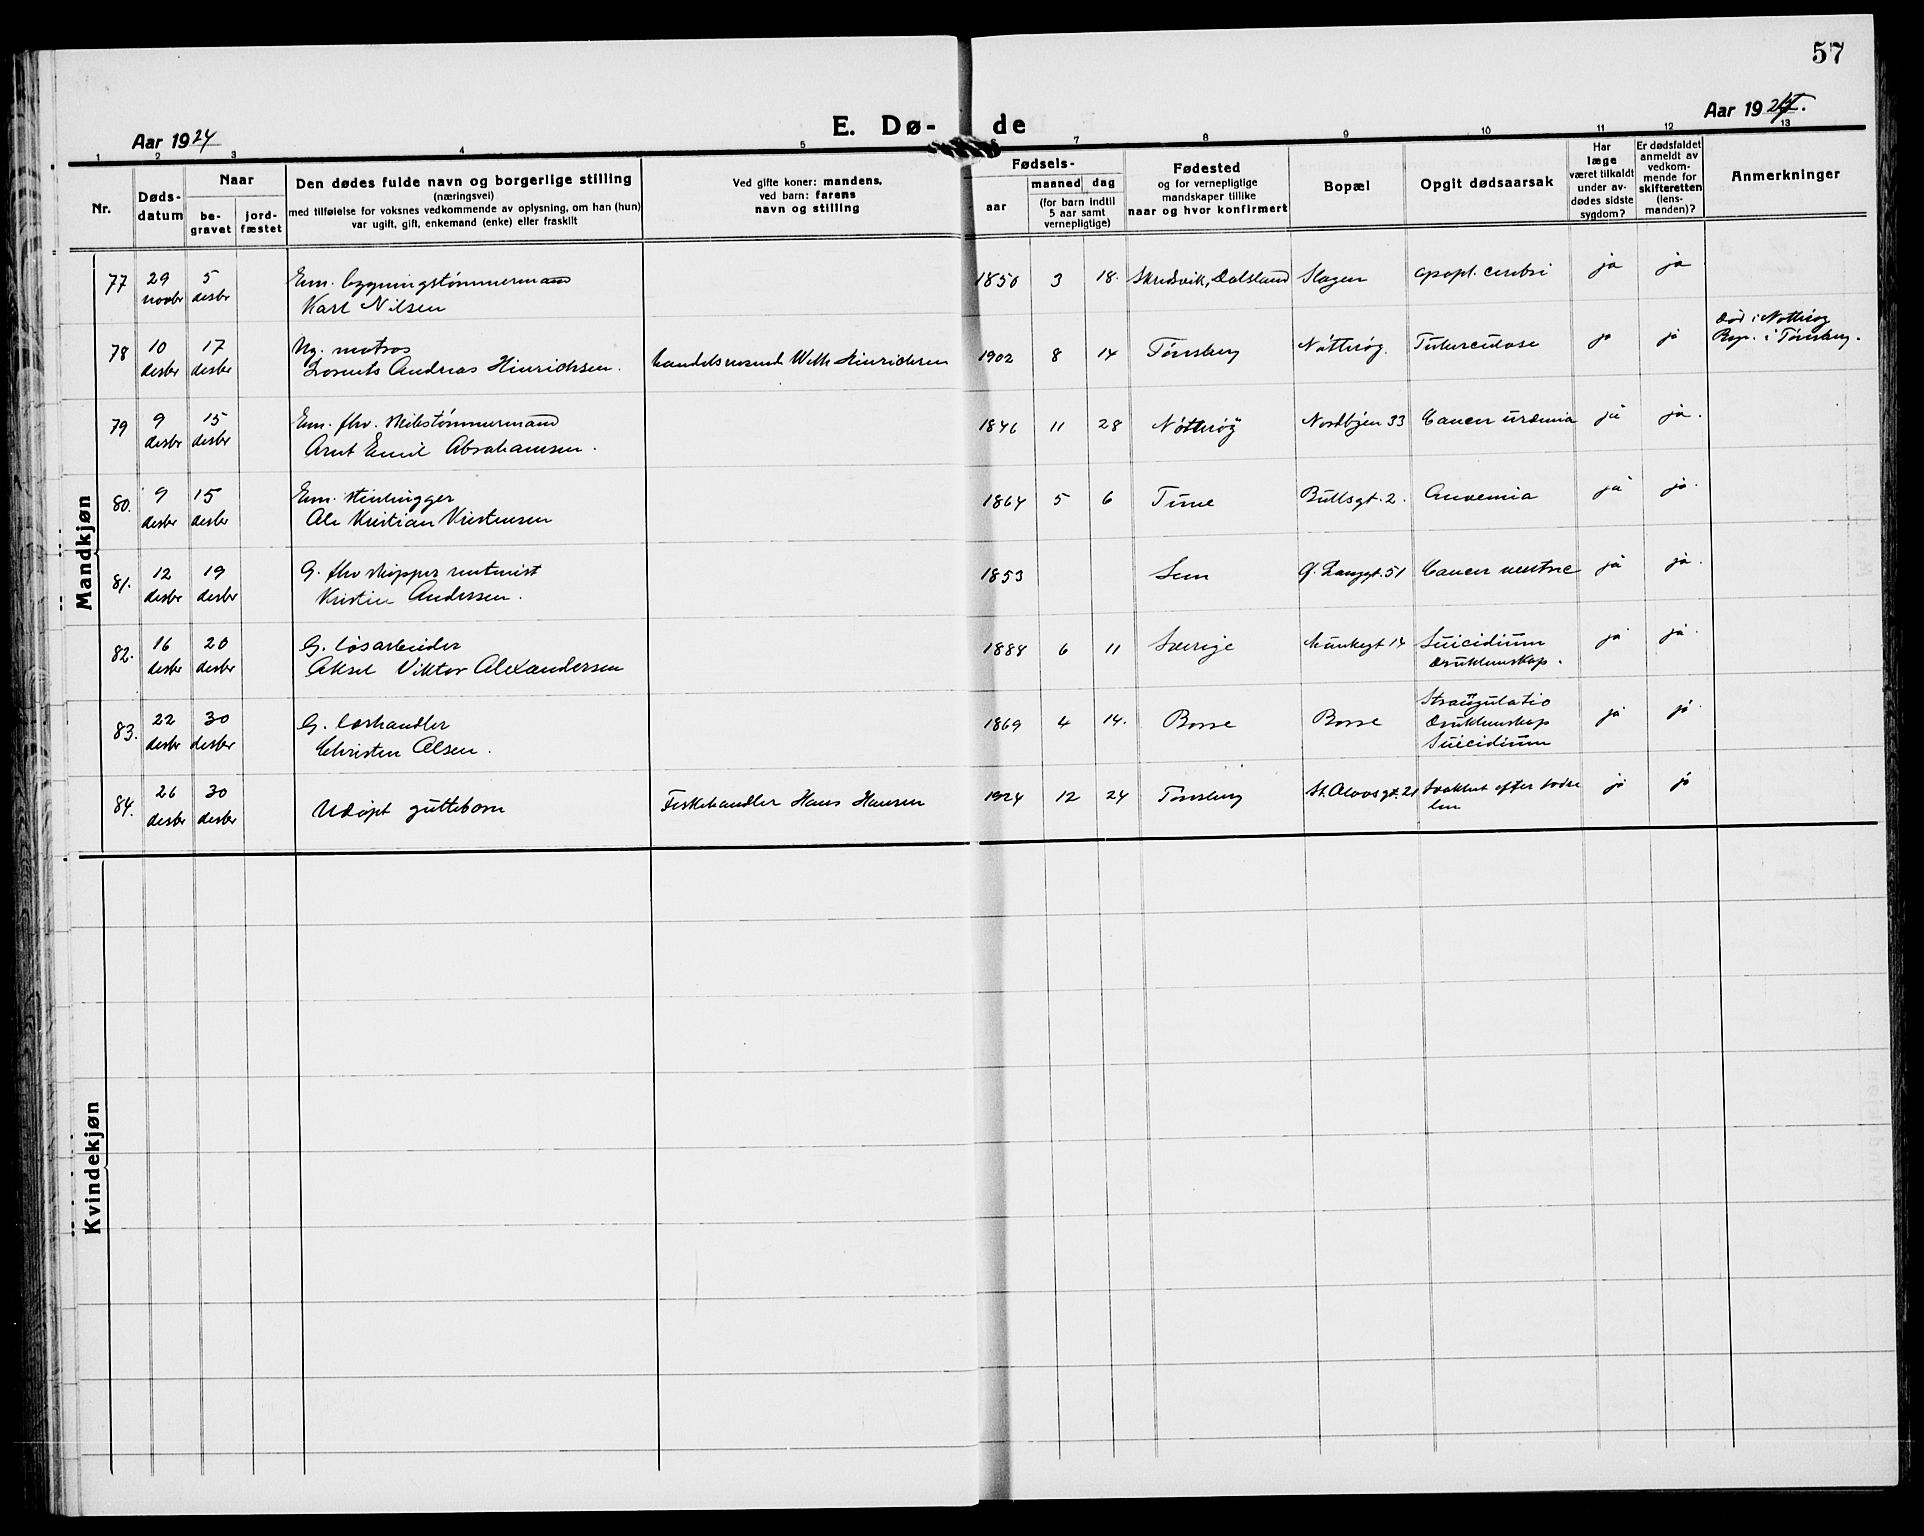 57
Aar 1924
E. Dø- de
Aar 192
1 2 3 4 5 7 8 9 10 11 12 13
Nr.
Døds-
datum
Naar
be-
gravet
jord-
fæstet
Den dødes fulde navn og borgerlige stilling
(næringsvei)
med tilføielse for voksnes vedkommende av oplysning, om han (hun)
var ugift, gift, enkemand (enke) eller fraskilt
Ved gifte koner: mandens,
ved barn: farens
navn og stilling
Fødsels-
aar
maaned dag
(for barn indtil
5 aar samt
vernepligtige)
Fødested
og for vernepligtige
mandskaper tillike
naar og hvor konfirmert
Bopæl
Opgit dødsaarsak
Har
læge
været tilkaldt
under av-
dødes sidste
sygdom?
Er dødsfaldet
anmeldt av
vedkom-
mende for
skifteretten
(lens-
manden)?
Anmerkninger
Mandkjøn
77 29 5 Em. bygningstømmermand 1850 3 18. Skredsvik, Dalsland Slagen apopl. cerebri ja ja
novbr desbr Karl Nilsen
78 10 17 Ug. matros 1902 8 14 Tønsberg Nøtterøy. Tuberculose ja ja Død i Nøtterøy
desbr desbr Lorents Andreas Hinrichsen. handelsreisende Wilh Hinrichsen Bop. i Tønsberg.
79 9 15 Em. fhv. skibstømmermand 1846 11 28 Nøtterøy Nordbyen 33 Cancer urämia ja ja.
desbr desbr Arnt Emil Abrahamsen.
80. 9 15 Em. stenhugger 1864 5 6 Tune Bullsgt. 2. Anæmia ja ja.
desbr desbr Ole Kristian Kristensen
81. 12 19 G. fhv skipper 1853 Sem Ø. Langgt. 51 Cancer ventric ja ja.
desbr desbr Kristian Andersen.
82. 16 20 G. løsarbeider 1888 6 11 Sverige Munkegt 14 Suicidium ja ja.
desbr desbr Aksel Viktor Alexandersen Drukkenskap.
83. 22 30 G. 1869 4 14. Borre Borre Strangulatio ja ja.
desbr desbr Christen Olsen. Drukkenskap
Suicidium
84. 26 30 Udøpt guttebarn Fiskehandler Hans Hansen 1924 12 24 Tønsberg St. Olavsgt. 21 Svakhet efter fødse ja ja
desbr desbr len
Kvindekjøn